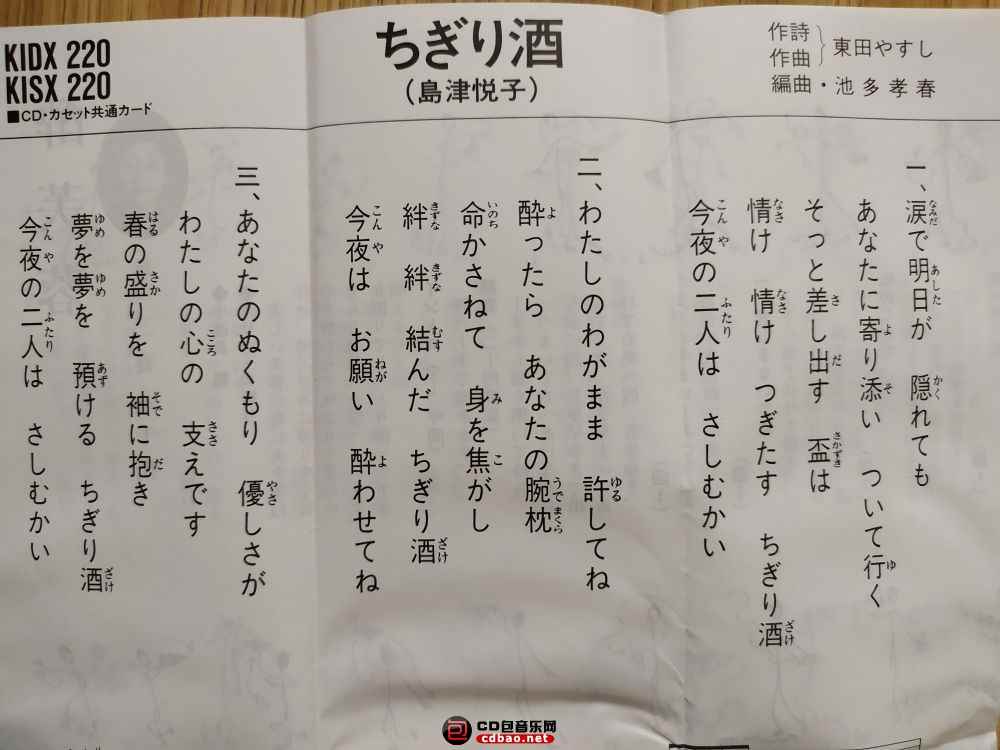 KIDX 220
KISX 220
■CD・カセット共通カード
ちぎり酒
(島津悦子)
作詩
作曲
東田やすし
編曲・池多孝春
一、涙で明日が 隠れても
あなたに寄り添い ついて行く
そっと差し出す 盃は
情け 情け つぎたす ちぎり酒
今夜の二人は さしむかい
二、わたしのわがまま 許してね
酔ったら あなたの腕枕
命かさねて 身を焦がし
絆 絆 結んだ ちぎり酒
今夜は お願い 酔わせてね
三、あなたのぬくもり 優しさが
わたしの心の 支えです
春の盛りを 袖に抱き
夢を夢を 預ける ちぎり酒
今夜の二人は さしむかい
CD包音乐网
cdbao.net